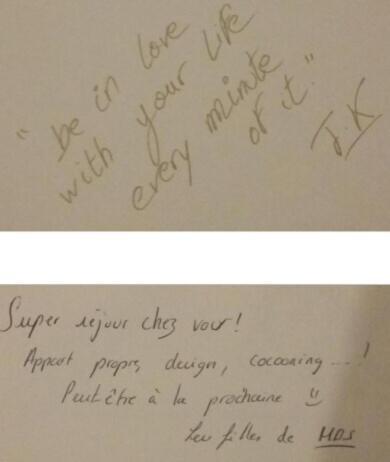 "be in love
with your life
every minute
of it."
J.K
Super séjour chez vous!
Appart propre, design, cocooning....!
Peut être à la prochaine
Les filles de MDS